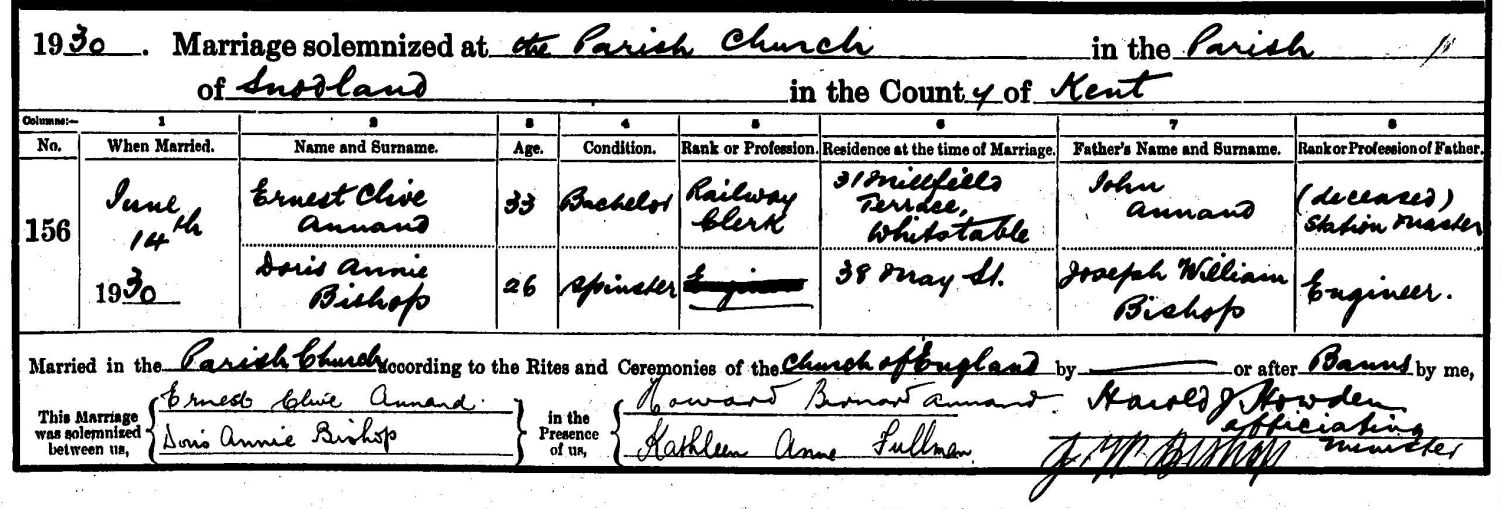 1930. Marriage solemnized at the Parish Church in the Parish
of Snodland in the County of Kent
Columns:— 1 2 3 4 5 6 7 8
No. When Married. Name and Surname. Age. Condition. Rank or Profession. Residence at the time of Marriage. Father's Name and Surname. Rank or Profession of Father.
156
June
14th
1930
Ernest Clive
Annand
33
Bachelor
Railway
Clerk
31 Millfield
Terrace,
Whitstable
John
Annand
(deceased)
Station Master
Doris Annie
Bishop
26
Spinster
38 May St.
Joseph William
Bishop
Engineer.
Married in the Parish Church according to the Rites and Ceremonies of the Church of England by ——— or after Banns by me,
This Marriage
was solemnized
between us,
Ernest Clive Annand.
Doris Annie Bishop
in the
Presence
of us,
Howard Bernard Annand.
Kathleen Anne Fullman.
J. W. Bishop
Harold J Howden
officiating
minister